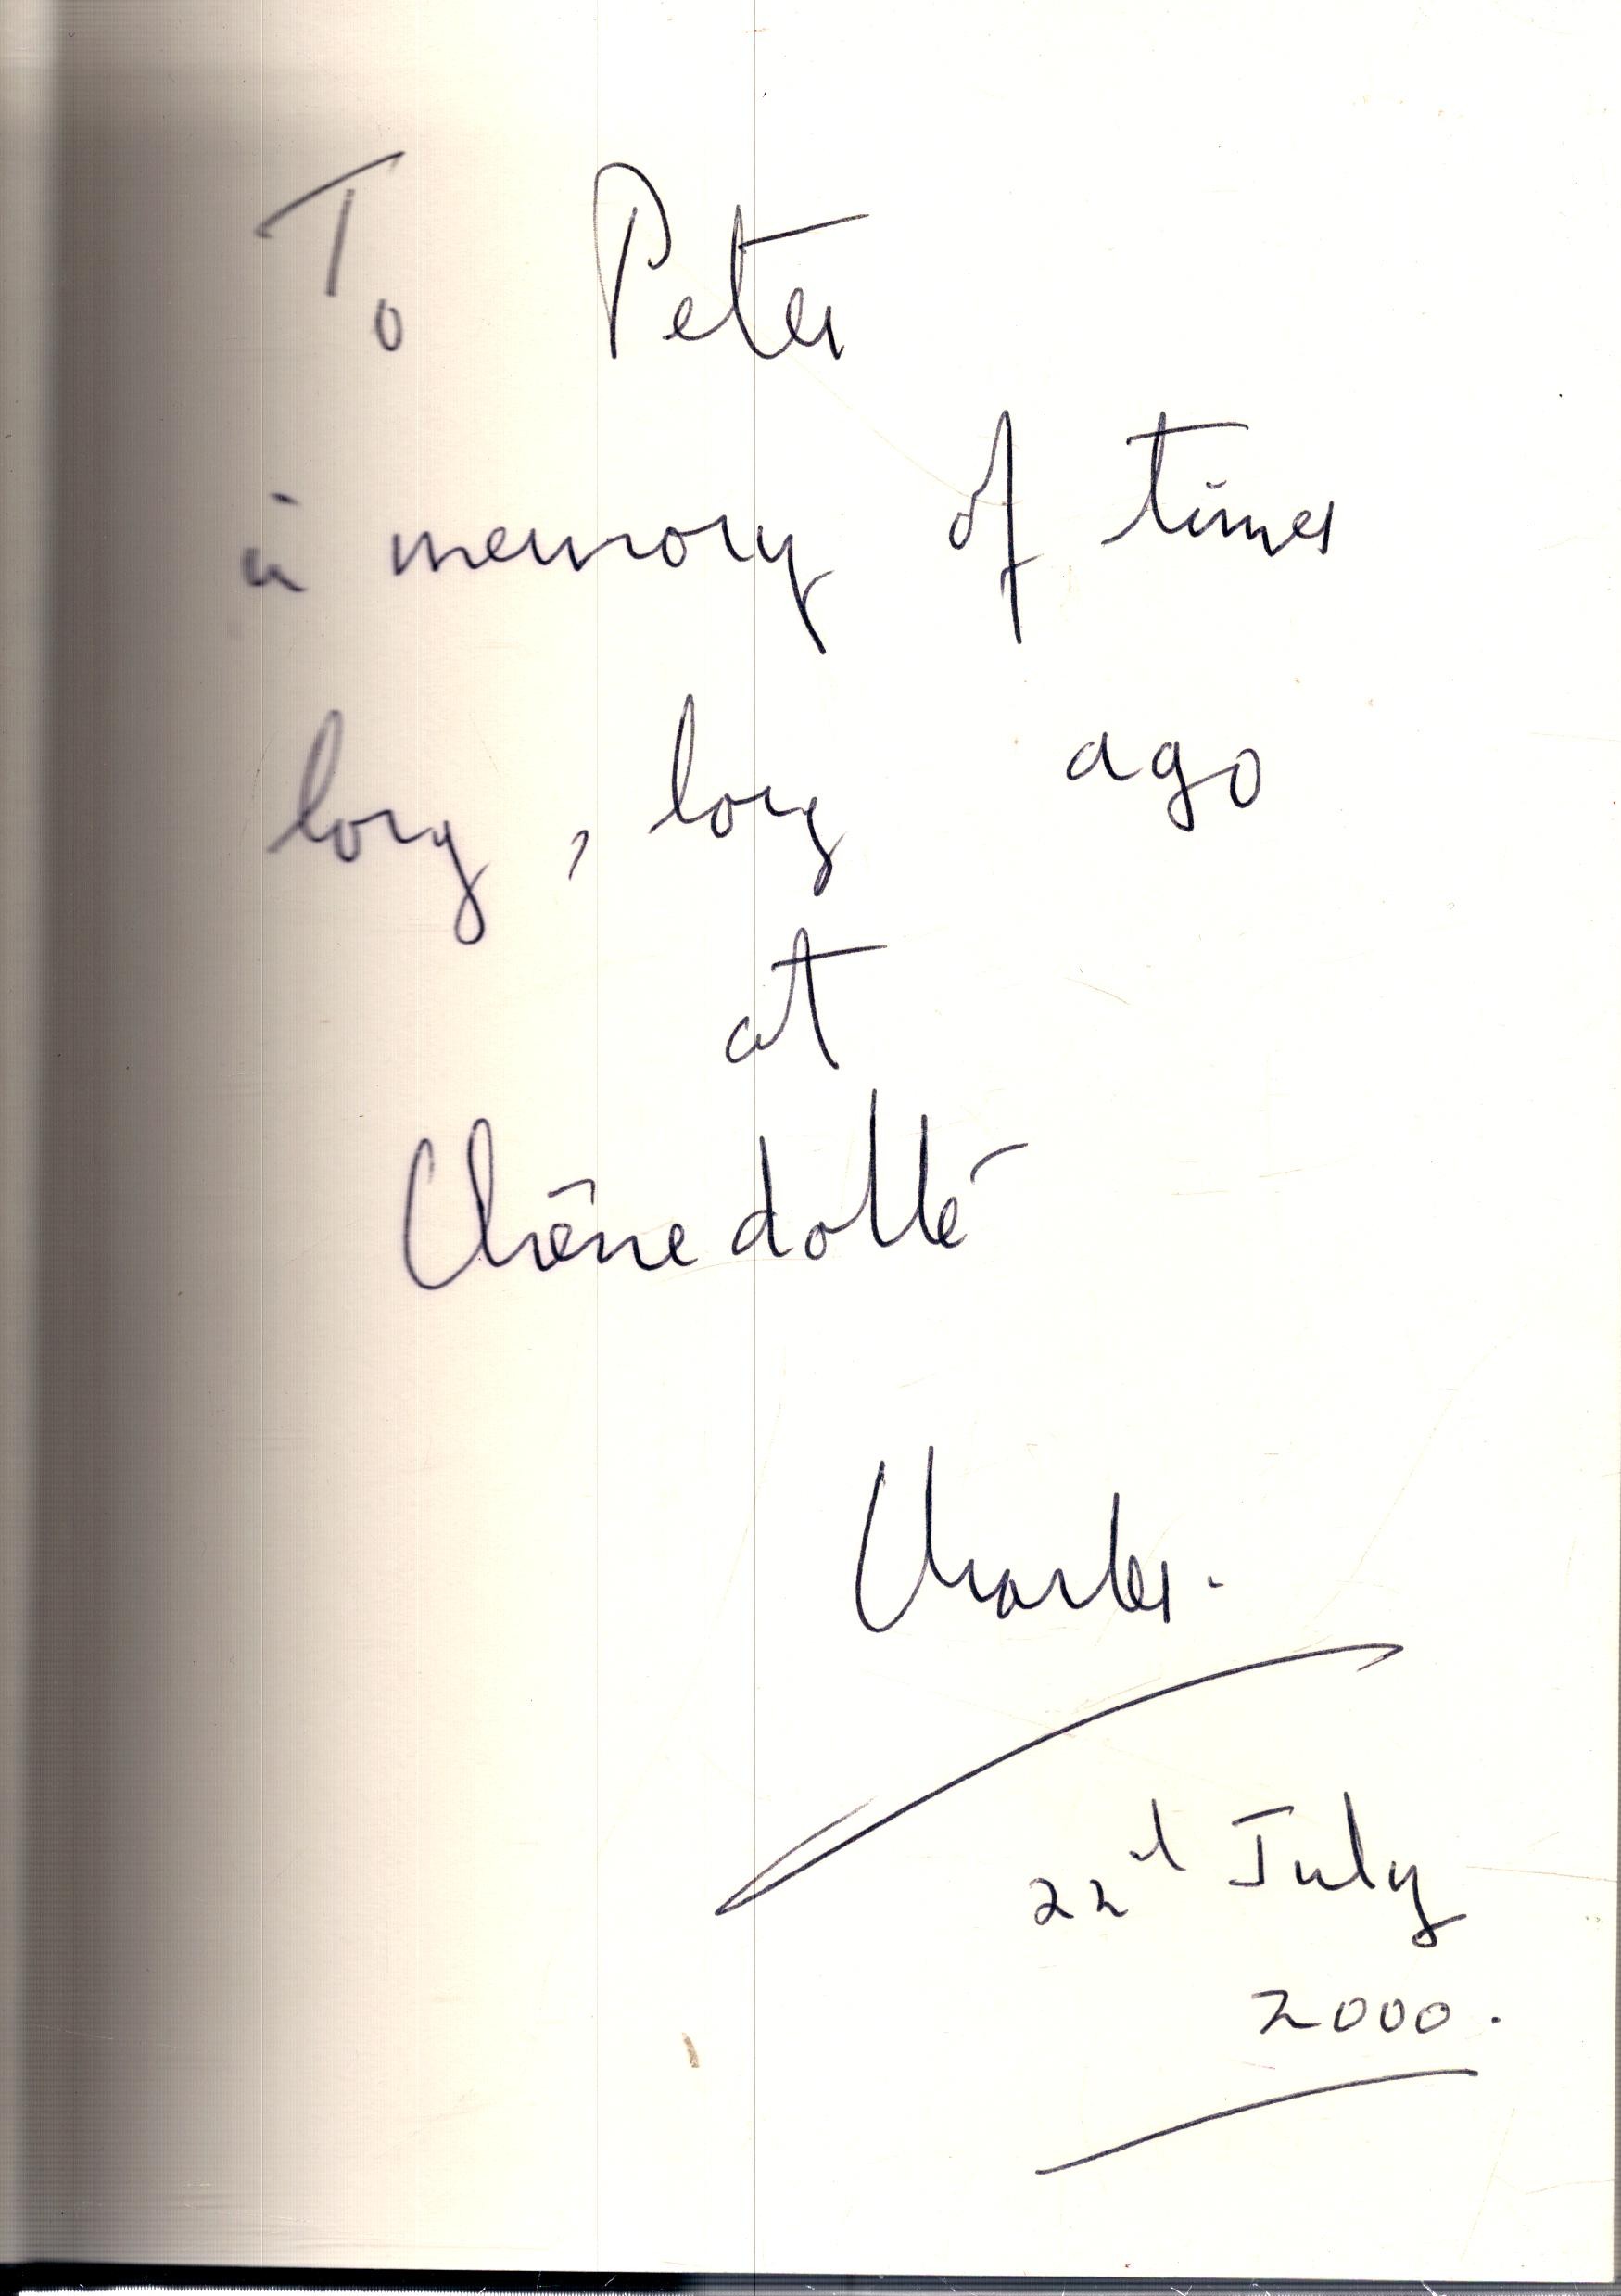 To Peter
in memory of times
long, long ago
at
Chênedollé
Charles.
22d July
2000.